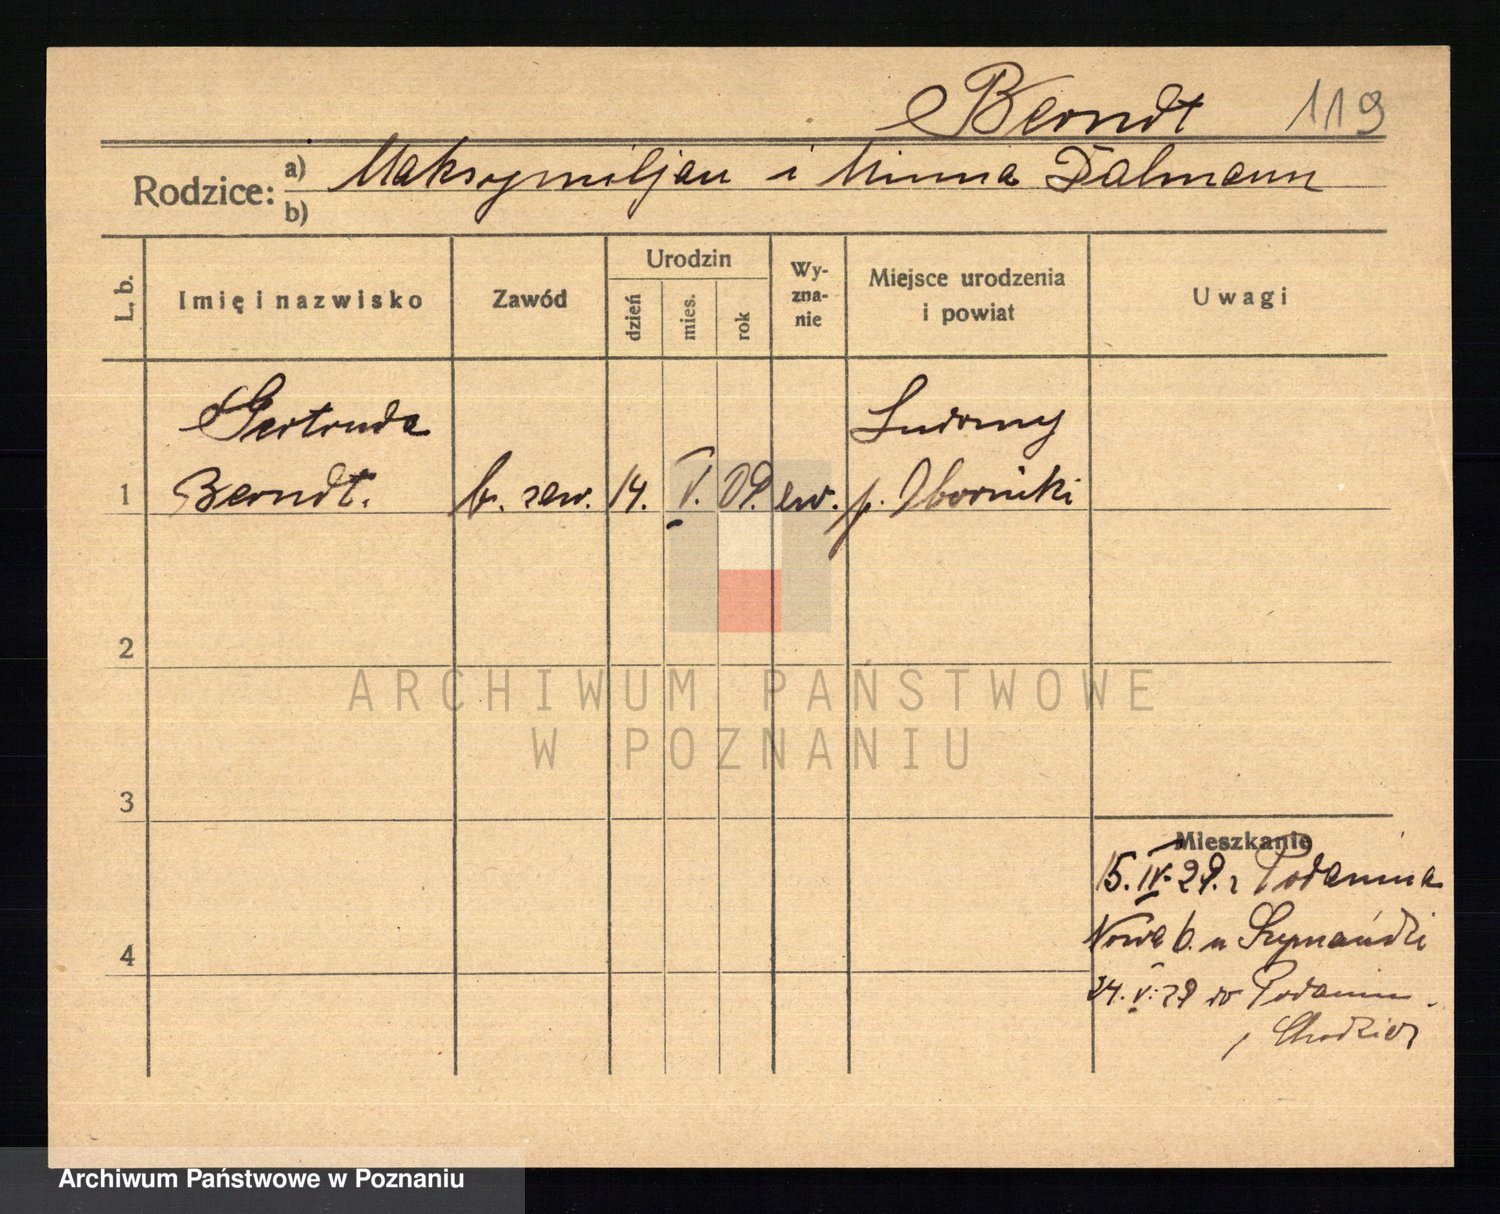 Berndt 119
Rodzice: a) Maksymiljan i Minna Dalmann
b)
L. b. Imię i nazwisko Zawód Urodzin dzień mies. rok Wy-zna-nie Miejsce urodzenia i powiat Uwagi
Gertruda Ludomy
1 Berndt. b. zaw. 14. V. 09. ew. p. Oborniki
2
ARCHIWUM PAŃSTWOWE
W POZNANIU
3
Mieszkanie
15. IV. 29. z Podanina
Nowa 6. u Szymański
4
24. V. 29 do Podanin
p. Chodzież
Archiwum Państwowe w Poznaniu